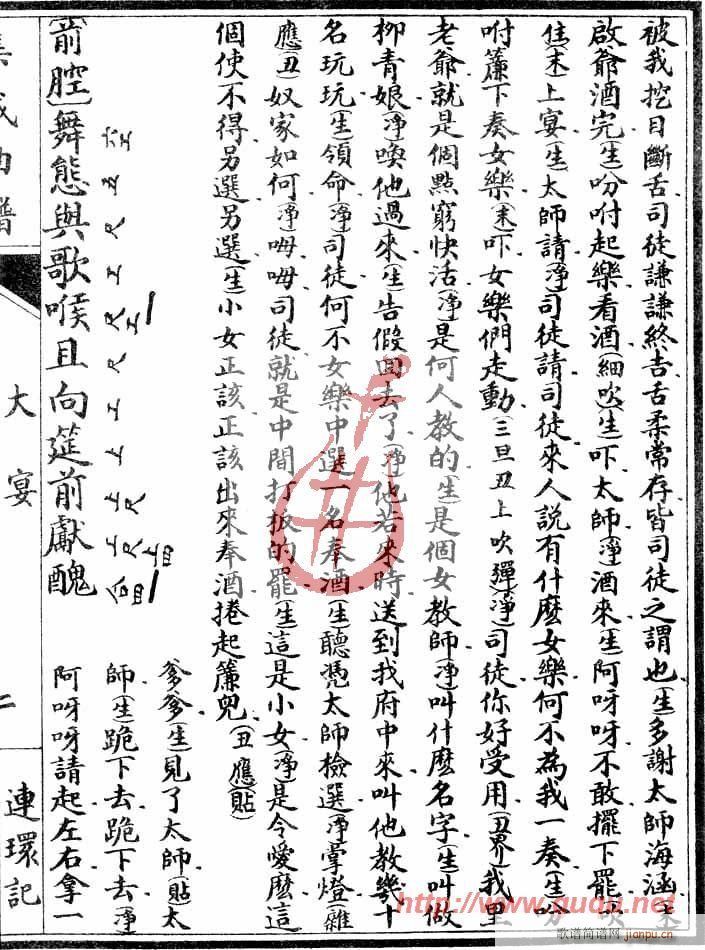 被我挖目斷舌司徒謙謙終吉舌柔常存皆司徒之謂也(生)多謝太師海涵
啟爺酒完(生)吩咐起樂看酒(細吹)(生)吓太師(淨)酒來(生)阿呀呀不敢擺下罷
住(末)上宴(生)太師請(淨)司徒請司徒來人說有什麽女樂何不為我一奏(生)吩
咐簾下奏女樂(末)吓女樂們走動(三旦丑上吹彈)(淨)司徒你好受用(丑界)我里
老爺就是個點窮快活(淨)是何人教的(生)是個女教師(淨)叫什麽名字(生)叫做
柳青娘(淨)喚他過來(生)告假回去了(淨)他若來時送到我府中來叫他教幾十
名玩玩(生)領命(淨)司徒何不女樂中選一名奉酒(生)聽憑太師檢選(淨)掌燈(雜
應)(丑)奴家如何(淨)呣呣司徒就是中間打板的罷(生)這是小女(淨)是令愛麽這
個使不得另選另選(生)小女正該正該出來奉酒捲起簾兒(丑應)(貼)
[前腔]舞態與歌喉且向筵前獻醜
爹爹(生)見了太師(貼)太
師(生)跪下去跪下去(淨)
阿呀呀請起左右拿一
集成曲譜
大宴
二
連環記
http://www.ququ.net
歌谱简谱网
jianpu.cn